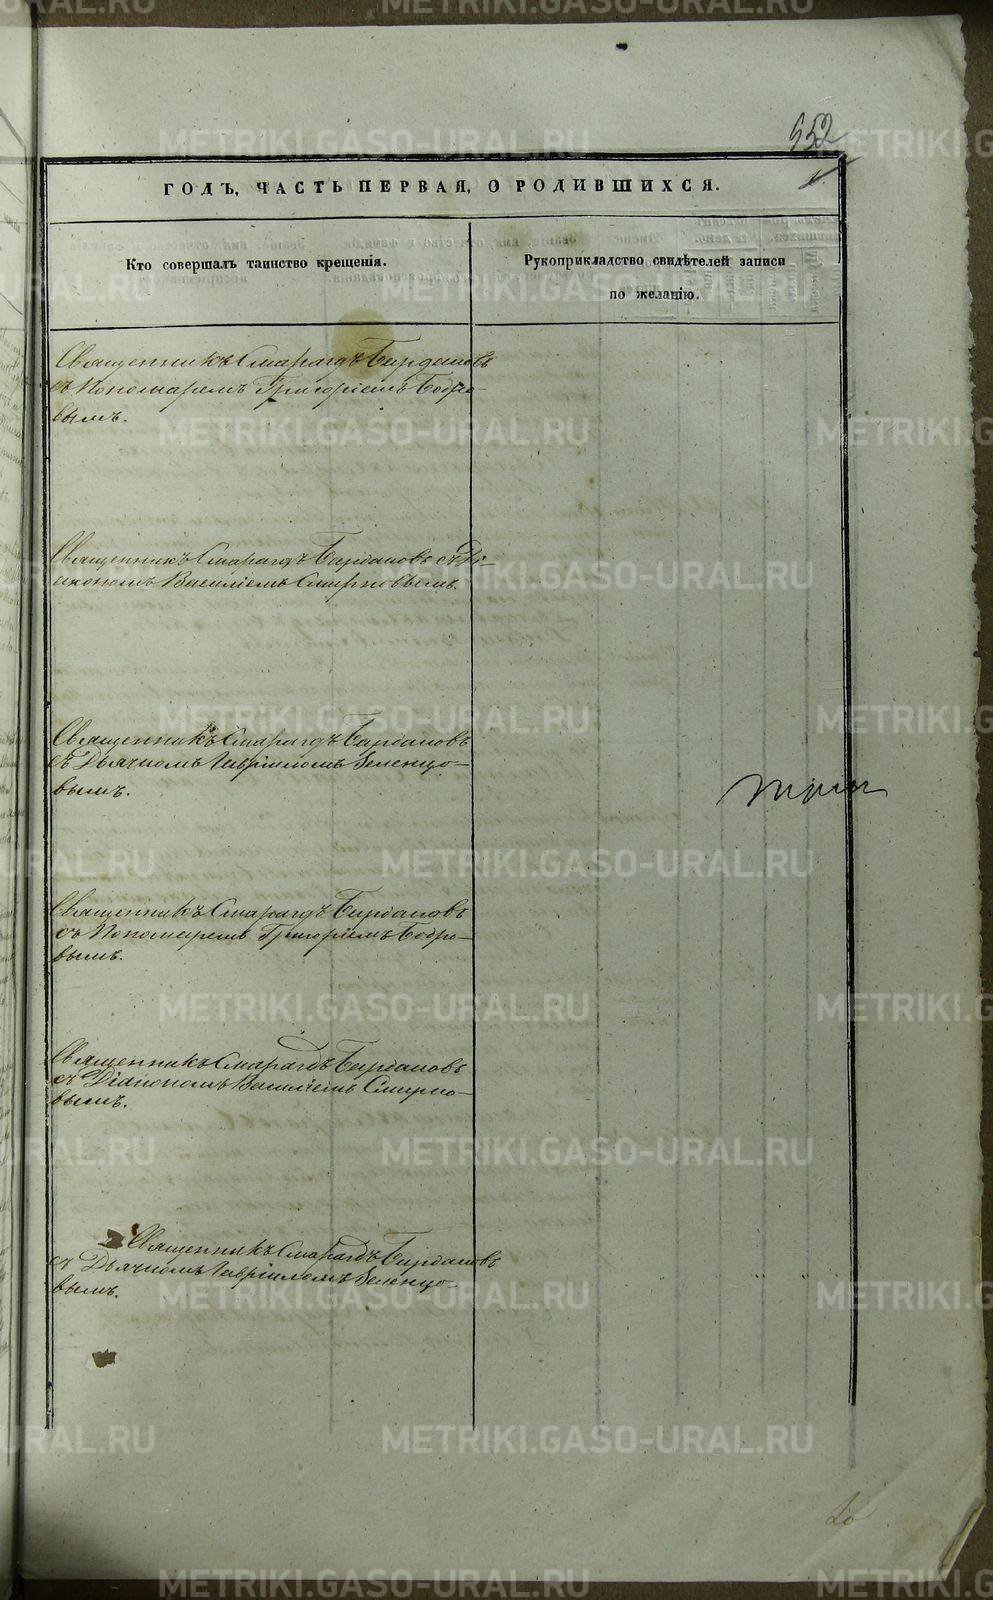 952
ГОДЪ, ЧАСТЬ ПЕРВАЯ, О РОДИВШИХСЯ.
Кто совершалъ таинство крещенія.
Рукоприкладство свидѣтелей записи
по желанію.
Священникъ Смарагдъ Бирдановъ
съ Пономаремъ Григоріемъ Бобро-
вымъ.
Священникъ Смарагдъ Бирдановъ съ Ді-
акономъ Василіемъ Смирновымъ.
Священникъ Смарагдъ Бирдановъ
съ Дьячкомъ Гавріиломъ Зеленцо-
вымъ.
Священникъ Смарагдъ Бирдановъ
съ Пономаремъ Григоріемъ Бобро-
вымъ.
Священникъ Смарагдъ Бирдановъ
съ Діакономъ Василіемъ Смирно-
вымъ.
Священникъ Смарагдъ Бирдановъ
съ Дьячкомъ Гавріиломъ Зеленцо-
вымъ.
METRIKI.GASO-URAL.RU